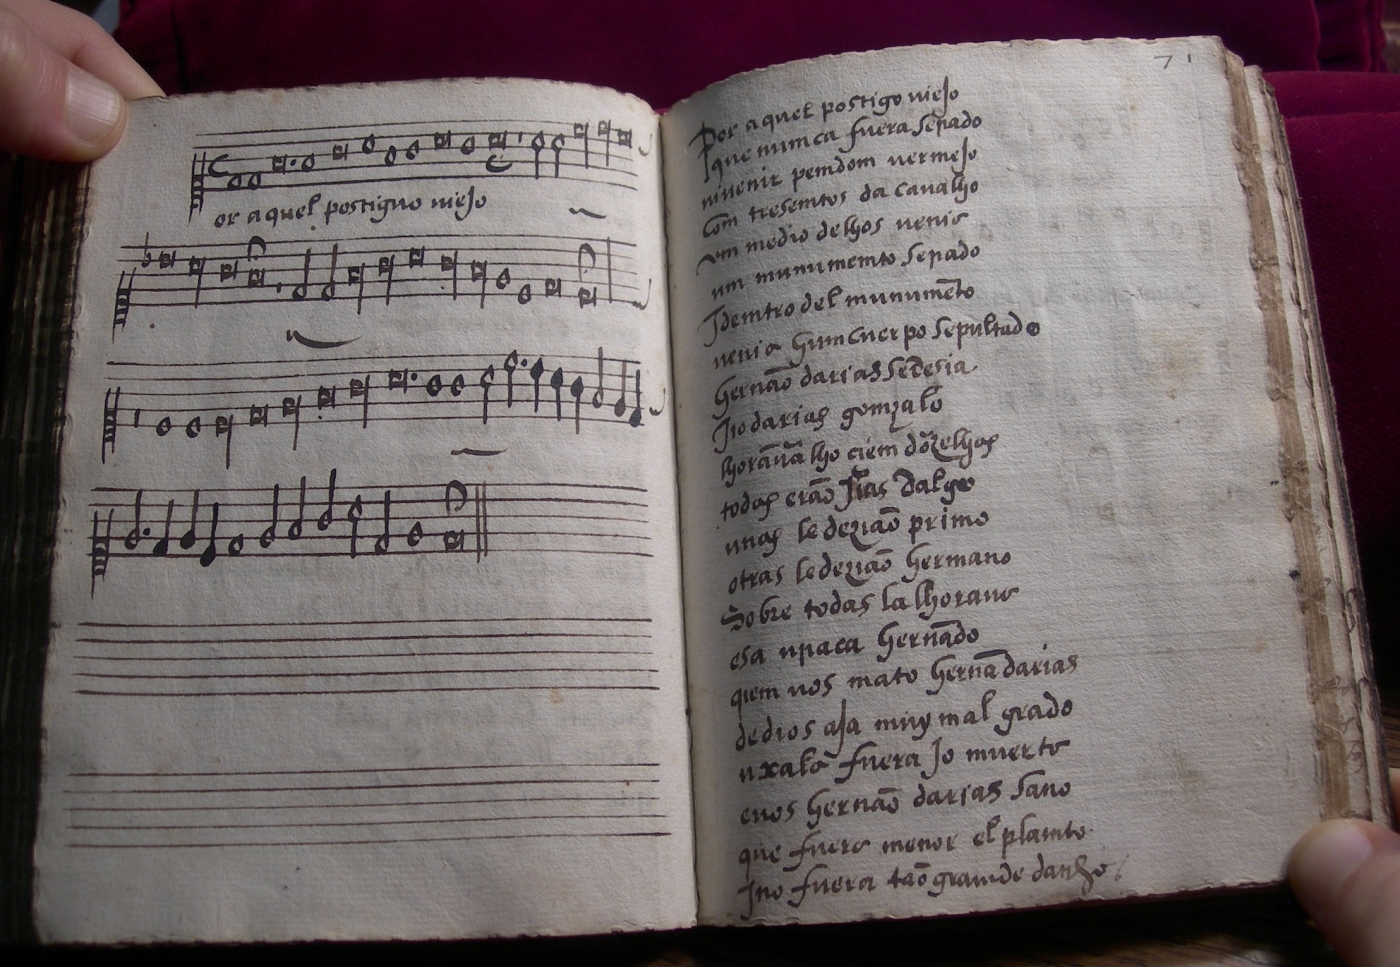 or aquel postiguo viejo
71
Por aquel postigo viejo
que numca fuera serado
vivenir pemdom vermejo
Com tresemtos da cavalho
vm medio delhos venir
um munumemto serado
Idemtro del munumẽto
venia hum cuerpo sepultado
hernaõ darias
Ino darias gomzalo
lho ciem dõzelhas
todas eraõ dalgo
unas le deziaõ primo
otras le deziaõ hermano
Sobre todas la lhorava
esa hernãdo
qiem vos mato hernãdarias
dedios aja muy mal grado
uxala fuera Jo muerto
evos hernaõ darias sano
que fuera menor el plamto
Ino fuera taõ gramde danho